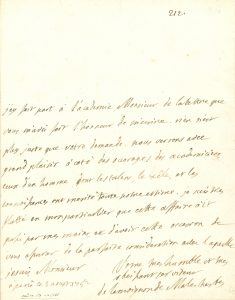 212.
j'ay fait part à l'academie Monsieur de la lettre que
vous m'avés fait l'honneur de m'ecrire. rien n'est
plus juste que votre demande. nous verrons avec
grand plaisir à coté des ouvrages des academiciens
ceux d'un homme dont les talens le zèle, et les
connoissances ont merité toute notre estime. je suis très
flatté en mon particulier que cette affaire ait
passé par mes mains et d'avoir cette occasion de
vous assurer de la parfaite consideration avec laquelle
je suis Monsieur
Votre tres humble et tres
à paris ce 2
obeissant serviteur
de Lamoignon de Malesherbes